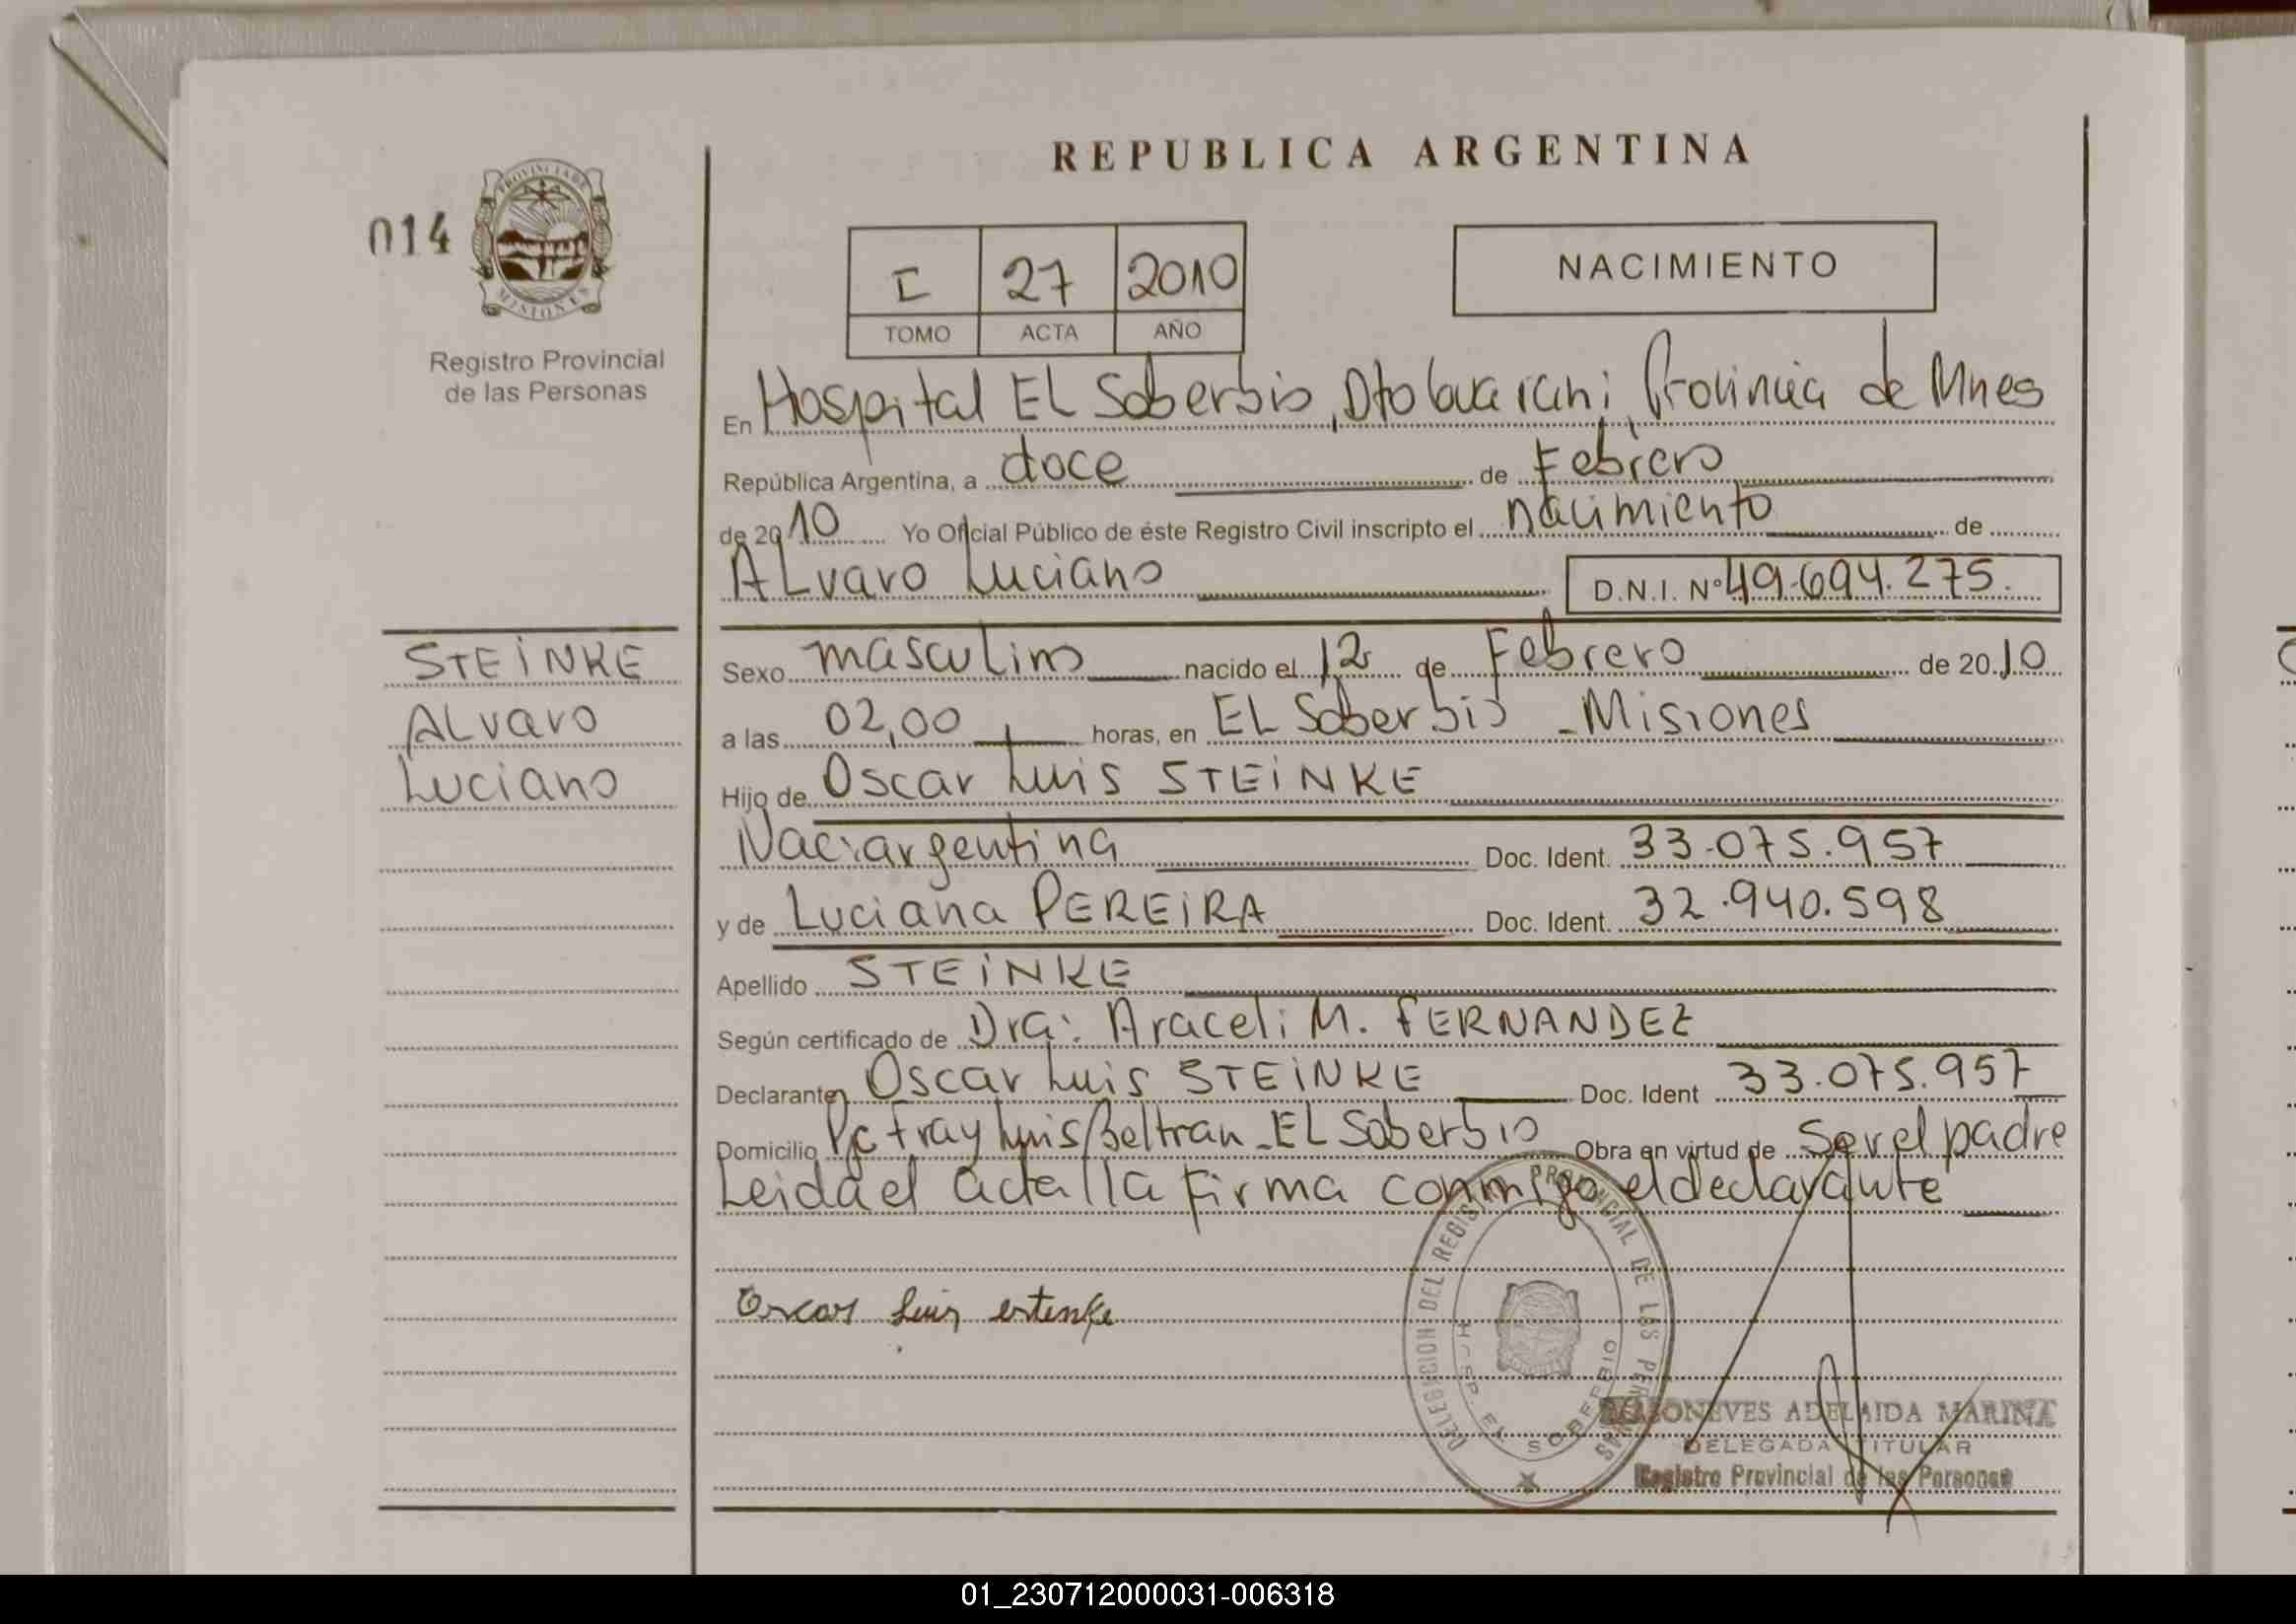 REPUBLICA ARGENTINA
014
PROVINCIA DE
MISIONES
Registro Provincial
de las Personas
I 27 2010
TOMO ACTA AÑO
NACIMIENTO
En Hospital EL Soberbio, Dto Guarani, Provincia de Mnes
República Argentina, a doce de Febrero
de 2010 Yo Oficial Público de éste Registro Civil inscripto el nacimiento de
ALvaro Luciano D.N.I. Nº 49.694.275.
STEiNKE
ALvaro
Luciano
Sexo masculino nacido el 12 de Febrero de 2010
a las 02,00 horas, en EL Soberbio - Misiones
Hijo de Oscar Luis STEiNKE
Nac: argentina Doc. Ident. 33.075.957
y de Luciana PEREiRA Doc. Ident. 32.940.598
Apellido STEiNKE
Según certificado de Dra: Araceli M. FERNANDEZ
Declarante Oscar Luis STEiNKE Doc. Ident 33.075.957
Domicilio Pje Fray Luis Beltran - EL Soberbio Obra en virtud de Ser el padre
Leida el acta lla firma conmigo el declarante
Oscar Luis estenke
DELEGACION DEL REGISTRO PROVINCIAL DE LAS PERSONAS
HOSP. EL SOBERBIO
ADELAIDA MARINA
DELEGADA TITULAR
Registro Provincial de las Personas
01_230712000031-006318